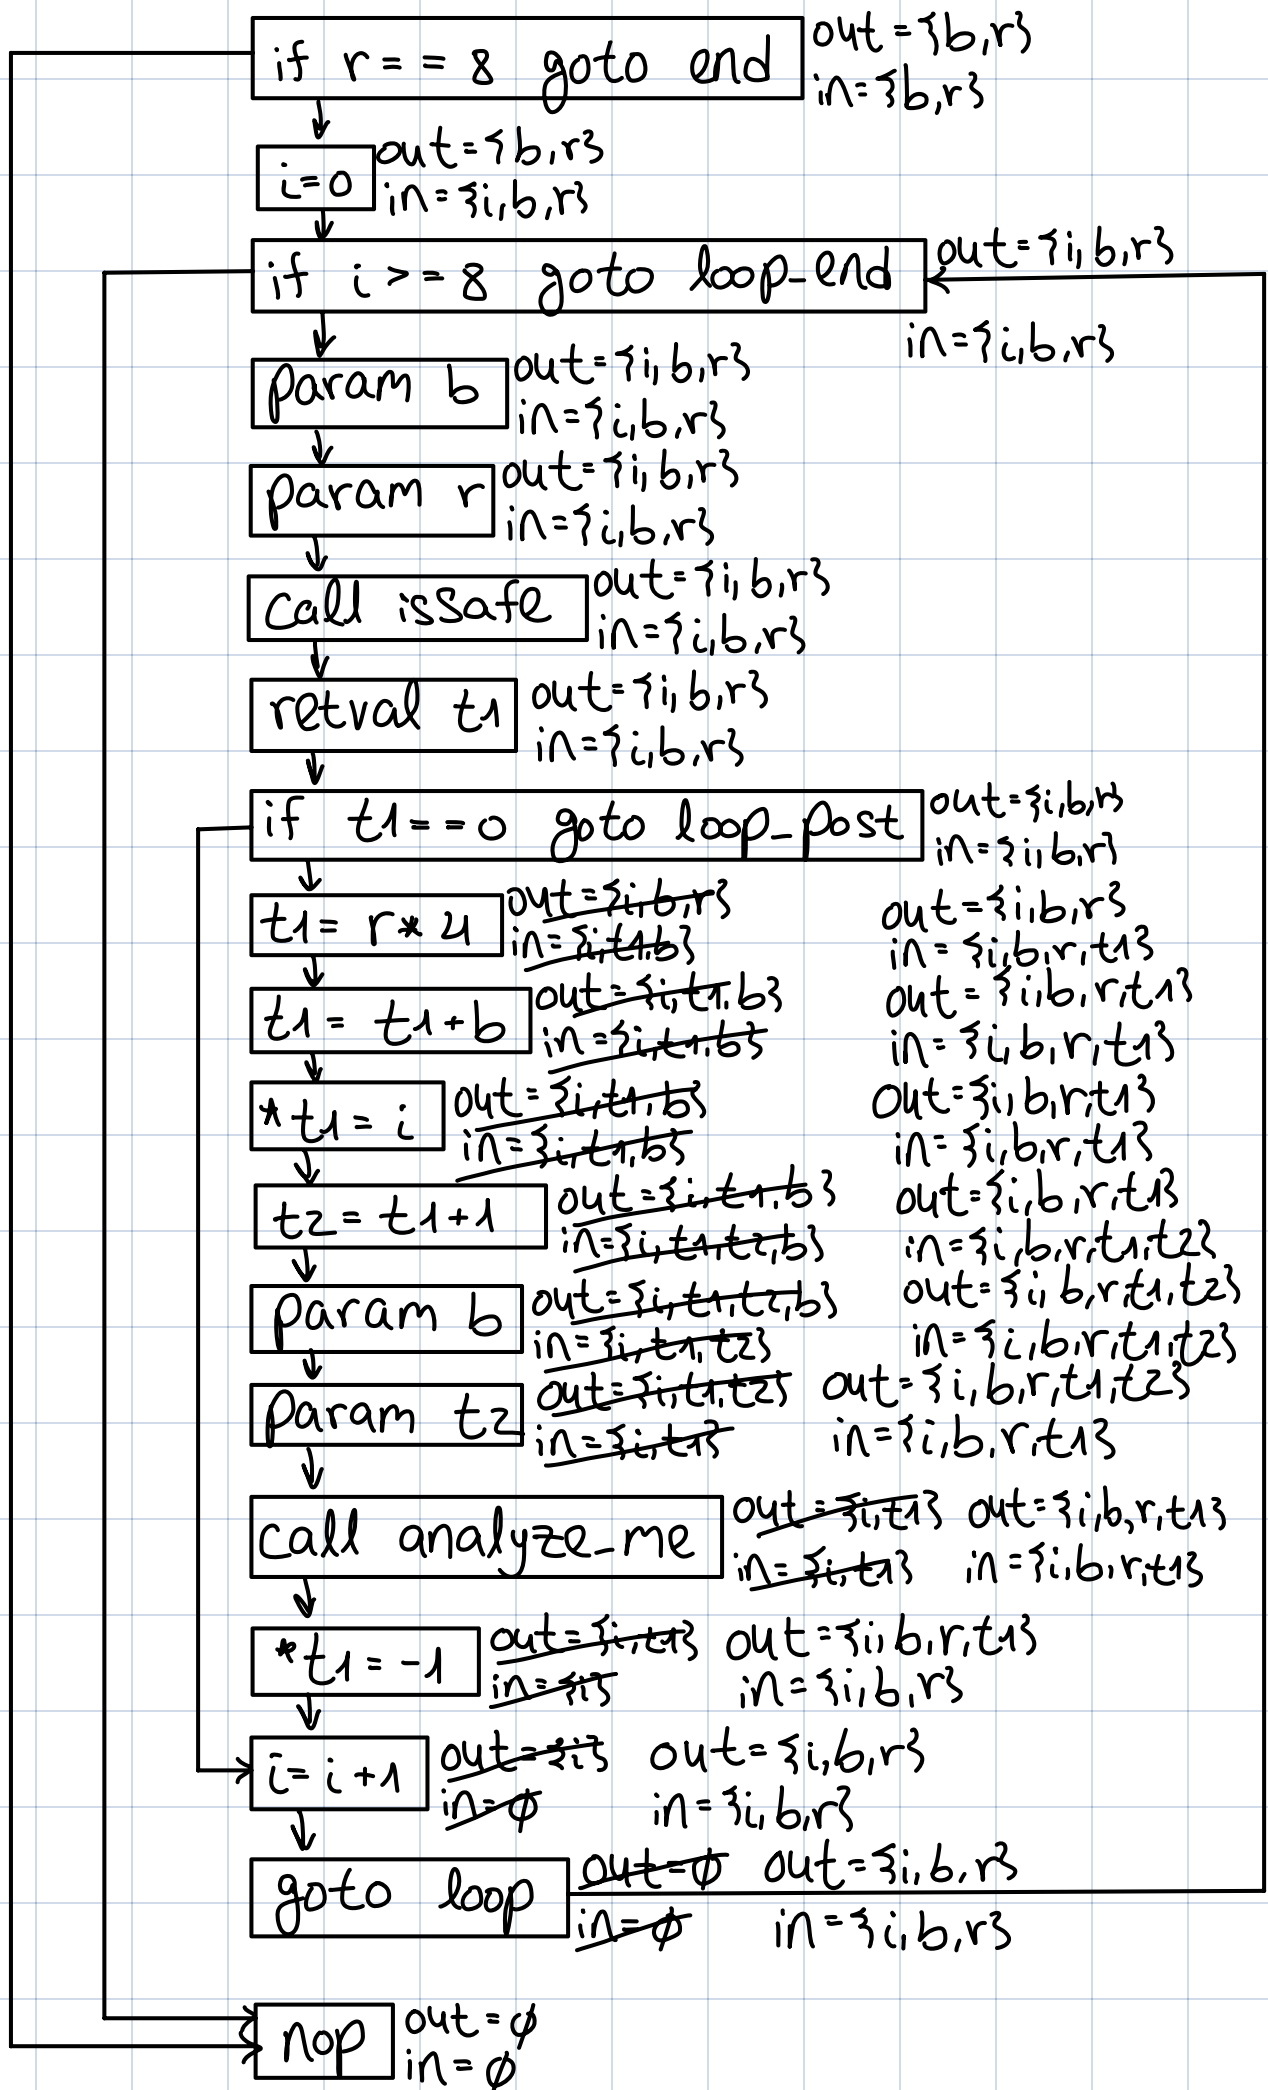 if r == 8 goto end
out={b,r}
in={b,r}
i=0
out={b,r}
in={i,b,r}
if i >= 8 goto loop_end
out={i,b,r}
in={i,b,r}
param b
out={i,b,r}
in={i,b,r}
param r
out={i,b,r}
in={i,b,r}
call isSafe
out={i,b,r}
in={i,b,r}
retval t1
out={i,b,r}
in={i,b,r}
if t1==0 goto loop_post
out={i,b,r}
in={i,b,r}
t1= r*4
out={i,b,r} out={i,b,r}
in={i,t1,b} in={i,b,r,t1}
t1= t1+b
out={i,t1,b} out={i,b,r,t1}
in={i,t1,b} in={i,b,r,t1}
*t1=i
out={i,t1,b} out={i,b,r,t1}
in={i,t1,b} in={i,b,r,t1}
t2=t1+1
out={i,t1,b} out={i,b,r,t1}
in={i,t1,t2,b} in={i,b,r,t1,t2}
param b
out={i,t1,t2,b} out={i,b,r,t1,t2}
in={i,t1,t2} in={i,b,r,t1,t2}
param t2
out={i,t1,t2} out={i,b,r,t1,t2}
in={i,t1} in={i,b,r,t1}
call analyze_me
out={i,t1} out={i,b,r,t1}
in={i,t1} in={i,b,r,t1}
*t1=-1
out={i,t1} out={i,b,r,t1}
in={i} in={i,b,r}
i=i+1
out={i} out={i,b,r}
in=ø in={i,b,r}
goto loop
out=ø out={i,b,r}
in=ø in={i,b,r}
nop
out=ø
in=ø